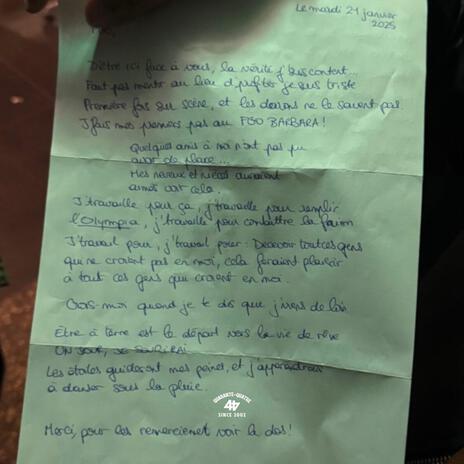 Le mardi 21 janvier
2025
Merci
D'être ici face à vous, la vérité j'suis content...
Faut pas mentir au lieu d'profiter je suis triste
Première fois sur scène, et les darons ne le savent pas
J'fais mes premiers pas au FGO BARBARA!
Quelques amis à moi n'ont pas pu
avoir de place...
Mes neveux et nièces auraient
aimés voir cela.
J'travaille pour ça, j'travaille pour remplir
l'Olympia, j'travaille pour combattre la faim
J'travail pour, j'travail pour: Decevoir toutces gens
qui ne croient pas en moi, cela feraient plaisir
à tout ces gens qui croient en moi.
Crois-moi quand je te dis que j'viens de loin
Etre à terre est le départ vers la vie de rêve
UN JOUR, JE SOURIRAI
Les étoiles guideront mes peines, et j'apprendrais
à danser sous la pluie.
QUARANTE-QUATRE
44
SINCE 2002
Merci, pour les remerciement voir le dos!